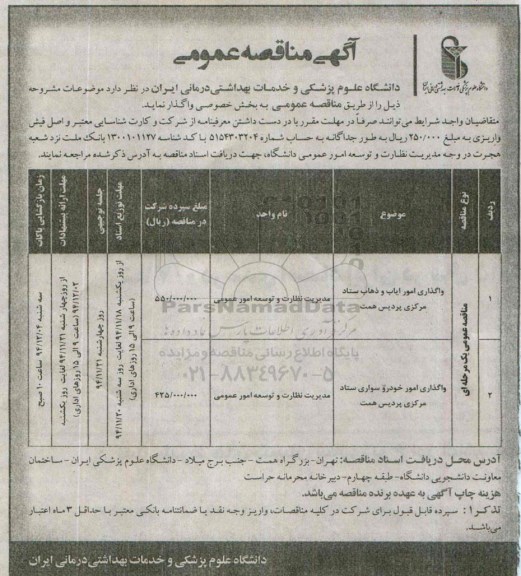 آگهی مناقصه عمومی
دانشگاه علوم پزشکی و خدمات بهداشتی درمانی ایران در نظر دارد موضوعات مشروحه
ذیل را از طریق مناقصه عمومی به بخش خصوصی واگذار نماید.
متقاضیان واجد شرایط می‌توانند صرفاً در مهلت مقرر با در دست داشتن معرفینامه از شرکت و کارت شناسایی معتبر و اصل فیش
واریزی به مبلغ ۲۵۰/۰۰۰ ریال به طور جداگانه به حساب شماره ۵۱۵۴۳۰۳۲۰۴ با کد شناسه ۱۳۰۰۱۰۱۱۲۷ بانک ملت نزد شعبه
هجرت در وجه مدیریت نظارت و توسعه امور عمومی دانشگاه، جهت دریافت اسناد مناقصه به آدرس ذکر شده مراجعه نمایند.
ردیف
نوع مناقصه
موضوع
نام واحد
مبلغ سپرده شرکت
در مناقصه (ریال)
مهلت توزیع اسناد
جلسه توجیهی
مهلت ارائه پیشنهادات
زمان بازگشایی پاکات
۱
مناقصه عمومی یک مرحله ای
واگذاری امور ایاب و ذهاب ستاد
مرکزی پردیس همت
مدیریت نظارت و توسعه امور عمومی
۵۵۰/۰۰۰/۰۰۰
از روز یکشنبه ۹۴/۱۱/۱۸ لغایت روز سه شنبه ۹۴/۱۱/۲۰
(ساعت ۹ الی ۱۵ روزهای اداری)
روز چهارشنبه ۹۴/۱۱/۲۱
از روز چهارشنبه ۹۴/۱۱/۲۱ لغایت روز یکشنبه
۹۴/۱۲/۰۲ (ساعت ۹ الی ۱۵ روزهای اداری)
سه شنبه ۹۴/۱۲/۰۴ ساعت ۱۰ صبح
۲
واگذاری امور خودرو سواری ستاد
مرکزی پردیس همت
مدیریت نظارت و توسعه امور عمومی
۴۲۵/۰۰۰/۰۰۰
ParsNamadData
پایگاه اطلاع رسانی مناقصه و مزایده
۰۲۱-۸۸۳۴۹۶۷۰-۵
آدرس محل دریافت اسناد مناقصه: تهران- بزرگراه همت - جنب برج میلاد - دانشگاه علوم پزشکی ایران - ساختمان
معاونت دانشجویی دانشگاه- طبقه چهارم- دبیرخانه محرمانه حراست
هزینه چاپ آگهی به عهده برنده مناقصه می‌باشد.
تذکر۱: سپرده قابل قبول برای شرکت در کلیه مناقصات، واریز وجه نقد یا ضمانتنامه بانکی معتبر با حداقل ۳ ماه اعتبار
می‌باشد.
دانشگاه علوم پزشکی و خدمات بهداشتی درمانی ایران